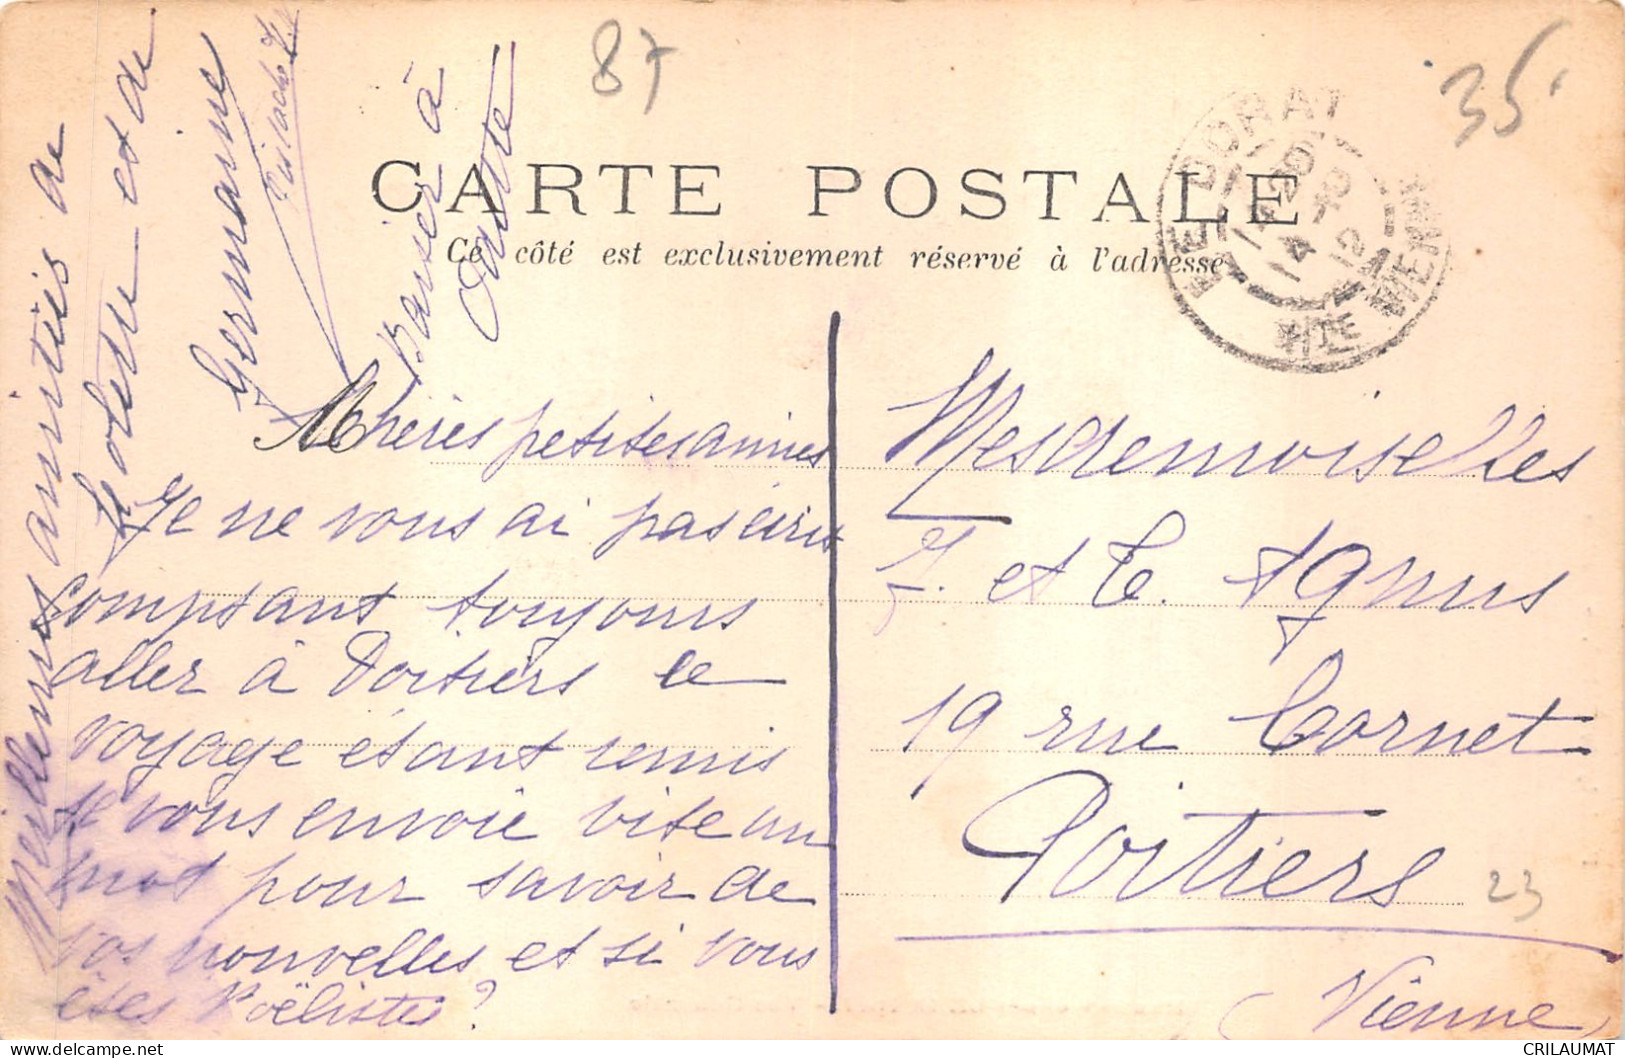 87
35
CARTE POSTALE
Ce côté est exclusivement réservé à l'adresse
LE DORAT
14
12
HTE VIENNE
Chères petites amies
Je ne vous ai pas écrit
comptant toujours
aller à Poitiers le
voyage étant remis
je vous envoie vite un
mot pour savoir de
vos nouvelles et si vous
êtes Noëlistes?
Meilleures amitiés de
et de
Germaine
Baiser à
Odette
Mesdemoiselles
J. et C. Agnus
19 rue Cornet
Poitiers
(Vienne)
23
CRILAUMAT